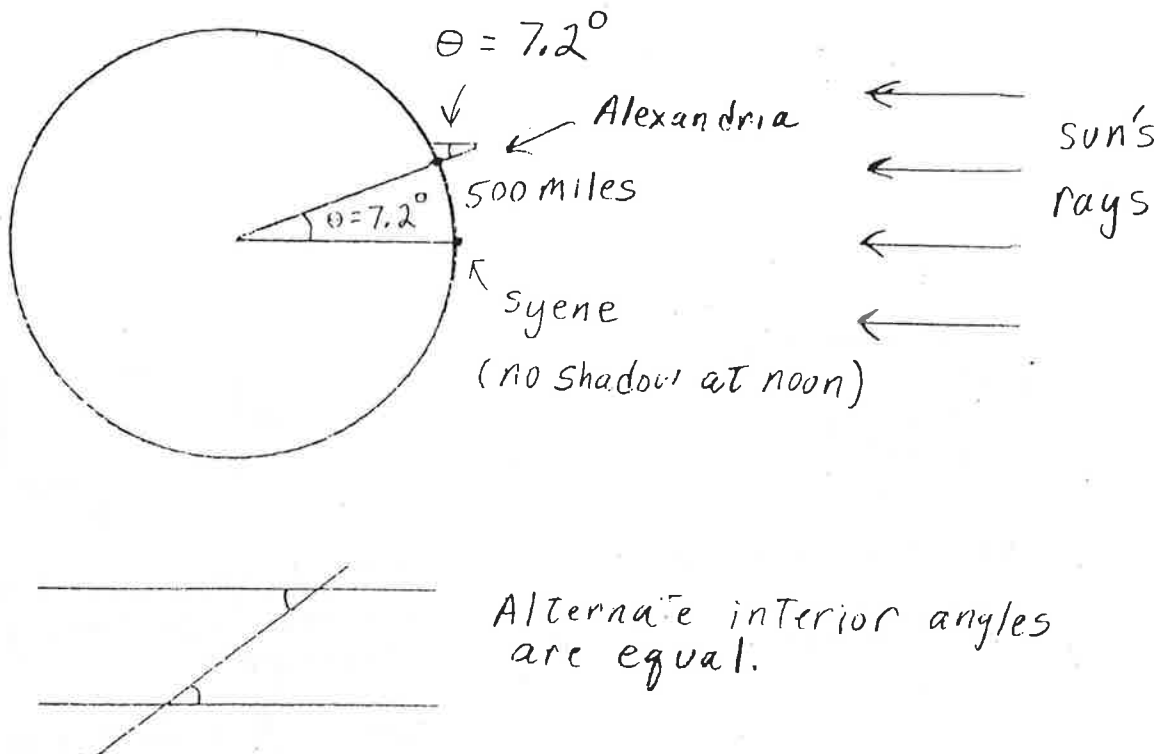 θ = 7.2°
Alexandria
500 miles
θ = 7.2°
syene
(no shadow at noon)
sun's
rays
Alternate interior angles
are equal.